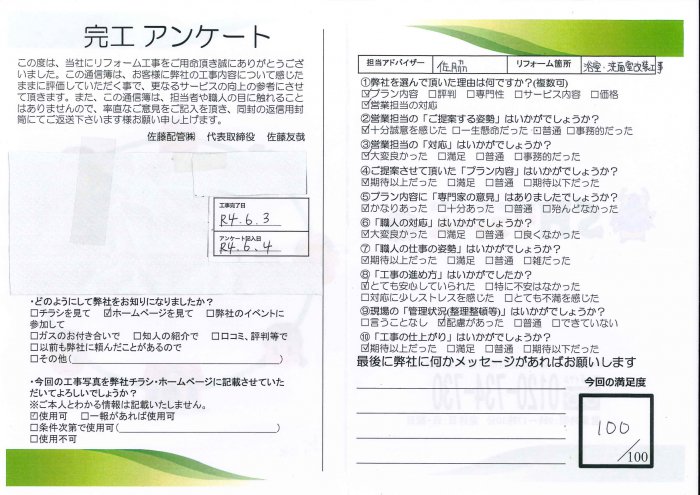 完工 アンケート
この度は、当社にリフォーム工事をご用命頂き誠にありがとうござ
いました。この通信簿は、お客様に弊社の工事内容について感じた
ままに評価していただく事で、更なるサービスの向上の参考にさせ
て頂きます。また、この通信簿は、担当者や職人の目に触れることは
ありませんので、率直なご意見をご記入を頂き、同封の返信用封
筒にてご返送下さいます様お願い申し上げます。
佐藤配管㈱ 代表取締役 佐藤友哉
工事完了日
R4.6.3
アンケート記入日
R4.6.4
・どのようにして弊社をお知りになりましたか?
☐チラシを見て ☑ホームページを見て ☐弊社のイベントに
参加して
☐ガスのお付き合いで ☐知人の紹介で ☐口コミ、評判等で
☐以前も弊社に頼んだことがあるので
☐その他( )
・今回の工事写真を弊社チラシ・ホームページに記載させていた
だいてよろしいでしょうか?
※ご本人とわかる情報は記載いたしません。
☑使用可 ☐一報があれば使用可
☐条件次第で使用可( )
☐使用不可
担当アドバイザー 佐々木 リフォーム箇所 浴室・洗面室改装工事
①弊社を選んで頂いた理由は何ですか?(複数可)
☑プラン内容 ☐評判 ☐専門性 ☐サービス内容 ☐価格
☑営業担当の対応
②営業担当の「ご提案する姿勢」はいかがでしょうか?
☑十分誠意を感じた ☐一生懸命だった ☐普通 ☐事務的だった
③営業担当の「対応」はいかがでしょうか?
☑大変良かった ☐満足 ☐普通 ☐事務的だった
④ご提案させて頂いた「プラン内容」はいかがでしょうか?
☑期待以上だった ☐満足 ☐普通 ☐期待以下だった
⑤プラン内容に「専門家の意見」はありましたか?
☑かなりあった ☐十分あった ☐普通 ☐殆んどなかった
⑥「職人の対応」はいかがでしょうか?
☑大変良かった ☐満足 ☐普通 ☐良くなかった
⑦「職人の仕事の姿勢」はいかがでしょうか?
☑期待以上だった ☐満足 ☐普通 ☐雑だった
⑧「工事の進め方」はいかがでしたか?
☑とても安心していられた ☐特に不安はなかった
☐対応に少しストレスを感じた ☐とても不満を感じた
⑨現場の「管理状況(整理整頓等)」はいかがでしょうか?
☐言うことなし ☑配慮があった ☐普通 ☐できていない
⑩「工事の仕上がり」はいかがでしょうか?
☑期待以上だった ☐満足 ☐普通 ☐期待以下だった
最後に弊社に何かメッセージがあればお願いします
今回の満足度
100
/100